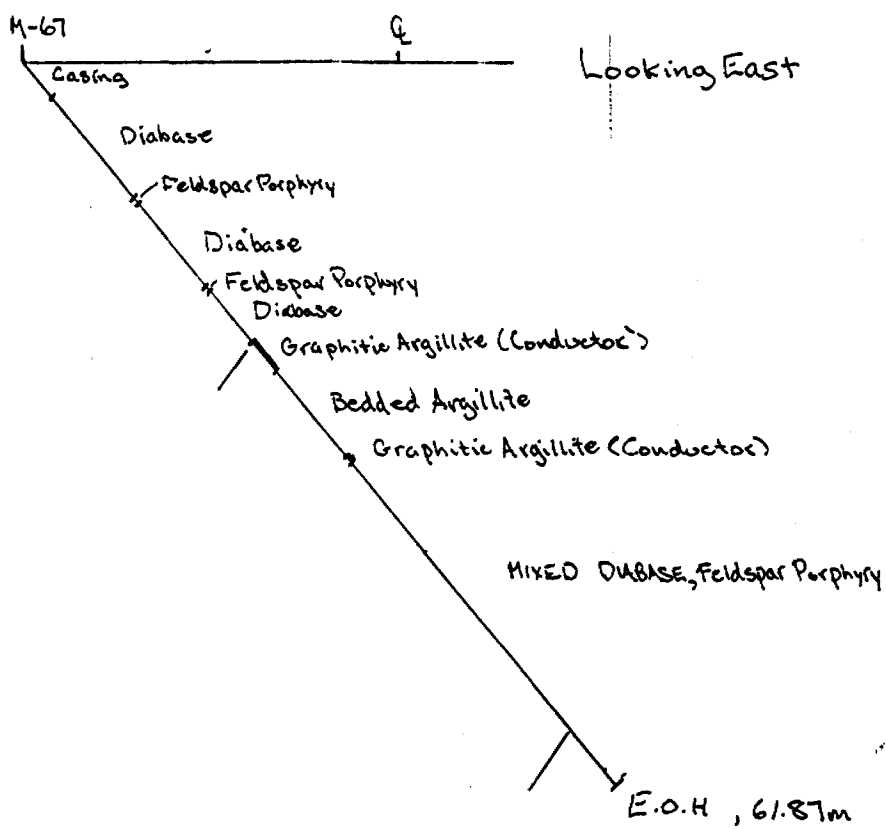 M-67
℄
Looking East
Casing
Diabase
Feldspar Porphyry
Diabase
Feldspar Porphyry
Diabase
Graphitic Argillite (Conductor)
Bedded Argillite
Graphitic Argillite (Conductor)
MIXED DIABASE, Feldspar Porphyry
E.O.H , 61.87m